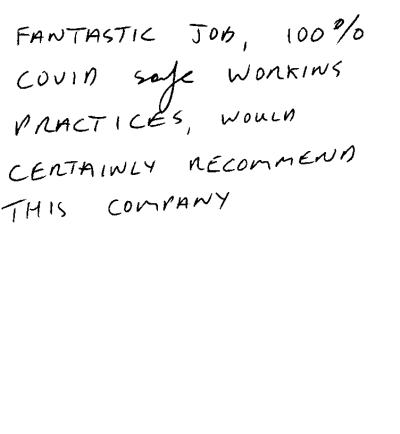 FANTASTIC JOB, 100%
COVID safe WORKING
PRACTICES, WOULD
CERTAINLY RECOMMEND
THIS COMPANY